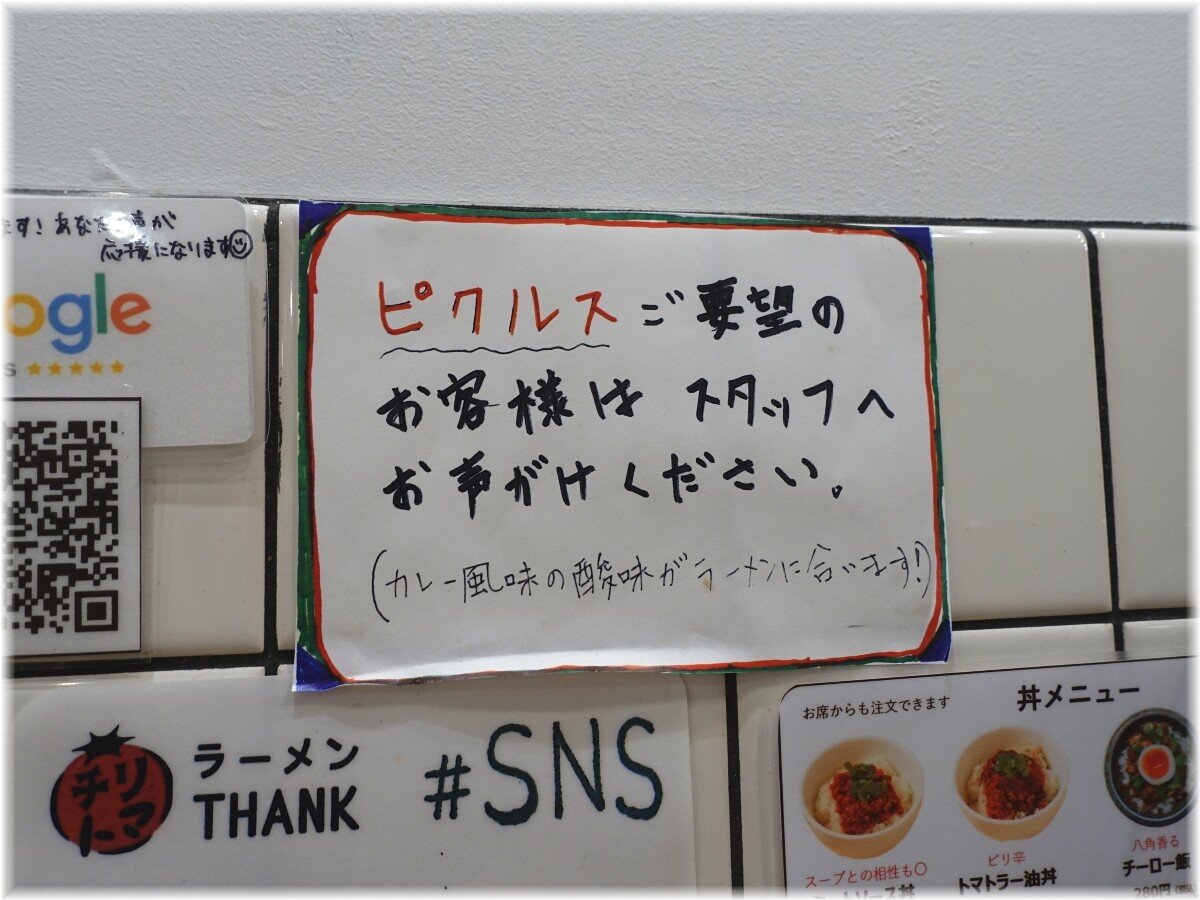 ます! あなたの声が
応援になります
ogle
s ★★★★★
ピクルスご要望の
お客様はスタッフへ
お声がけください。
(カレー風味の酸味がラーメンに合います!)
チリトマ
ラーメン
THANK
#SNS
お席からも注文できます
丼メニュー
スープとの相性も○
ソース丼
ピリ辛
トマトラー油丼
八角香る
チーロー飯
280円